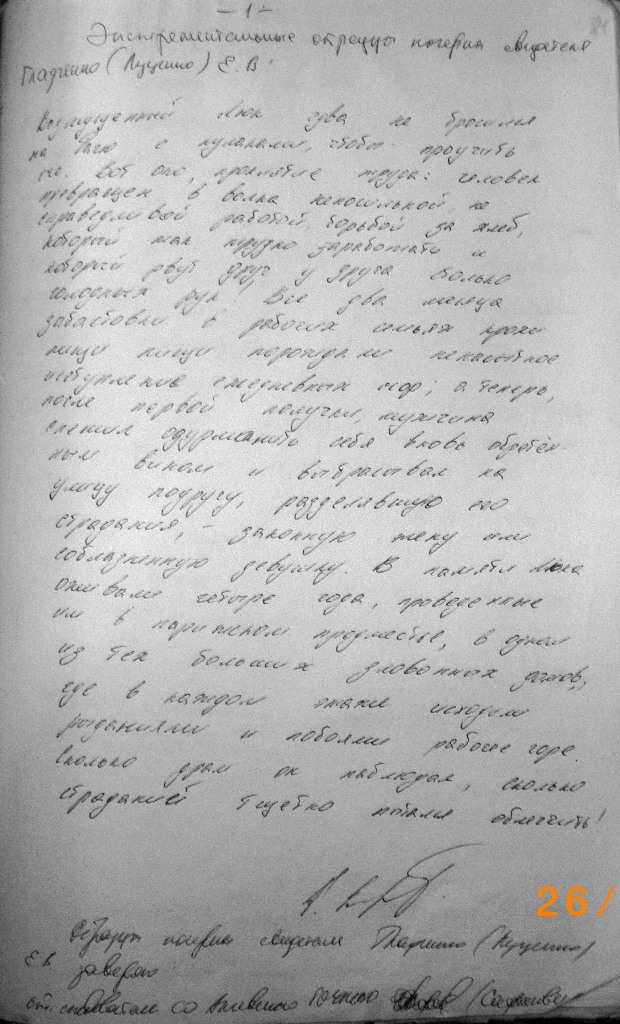 - 1 -
Эксперементальные образцы почерка свидетеля
Гладченко (Луценко) Е. В:
Возмущенный Люк едва не бросился
на Рагю с кулаками, чтобы проучить
его. Вот оно, проклятие труда: человек
превращен в волка непосильной, не
справедливой работой, борьбой за хлеб,
который так трудно заработать и
который рвут друг у друга столько
голодных рук! Все два месяца
забастовки в рабочих семьях крохи
пищи пищи порождали ненасытное
исступление ежедневных ссор; а теперь,
после первой получки, мужчина
спешил одурманить себя вновь обретён-
ным вином и выбрасывал на
улицу подругу, разделявшую его
страдания, - законную жену или
соблазненную девушку. В памяти Люка
оживали четыре года, проведенные
им в парижском предместье, в одном
из тех больших зловонных домов,
где в каждом этаже исходили
рыданиями и побоями рабочее горе.
Сколько драм он наблюдал, сколько
страданий тщетно пытался облегчить!
26/
Образцы почерка свидетеля Гладченко (Луценко)
Е. В. заверяю
ст. следователь СО